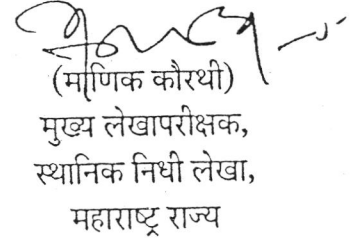 (माणिक कौरथी)
मुख्य लेखापरीक्षक,
स्थानिक निधी लेखा,
महाराष्ट्र राज्य